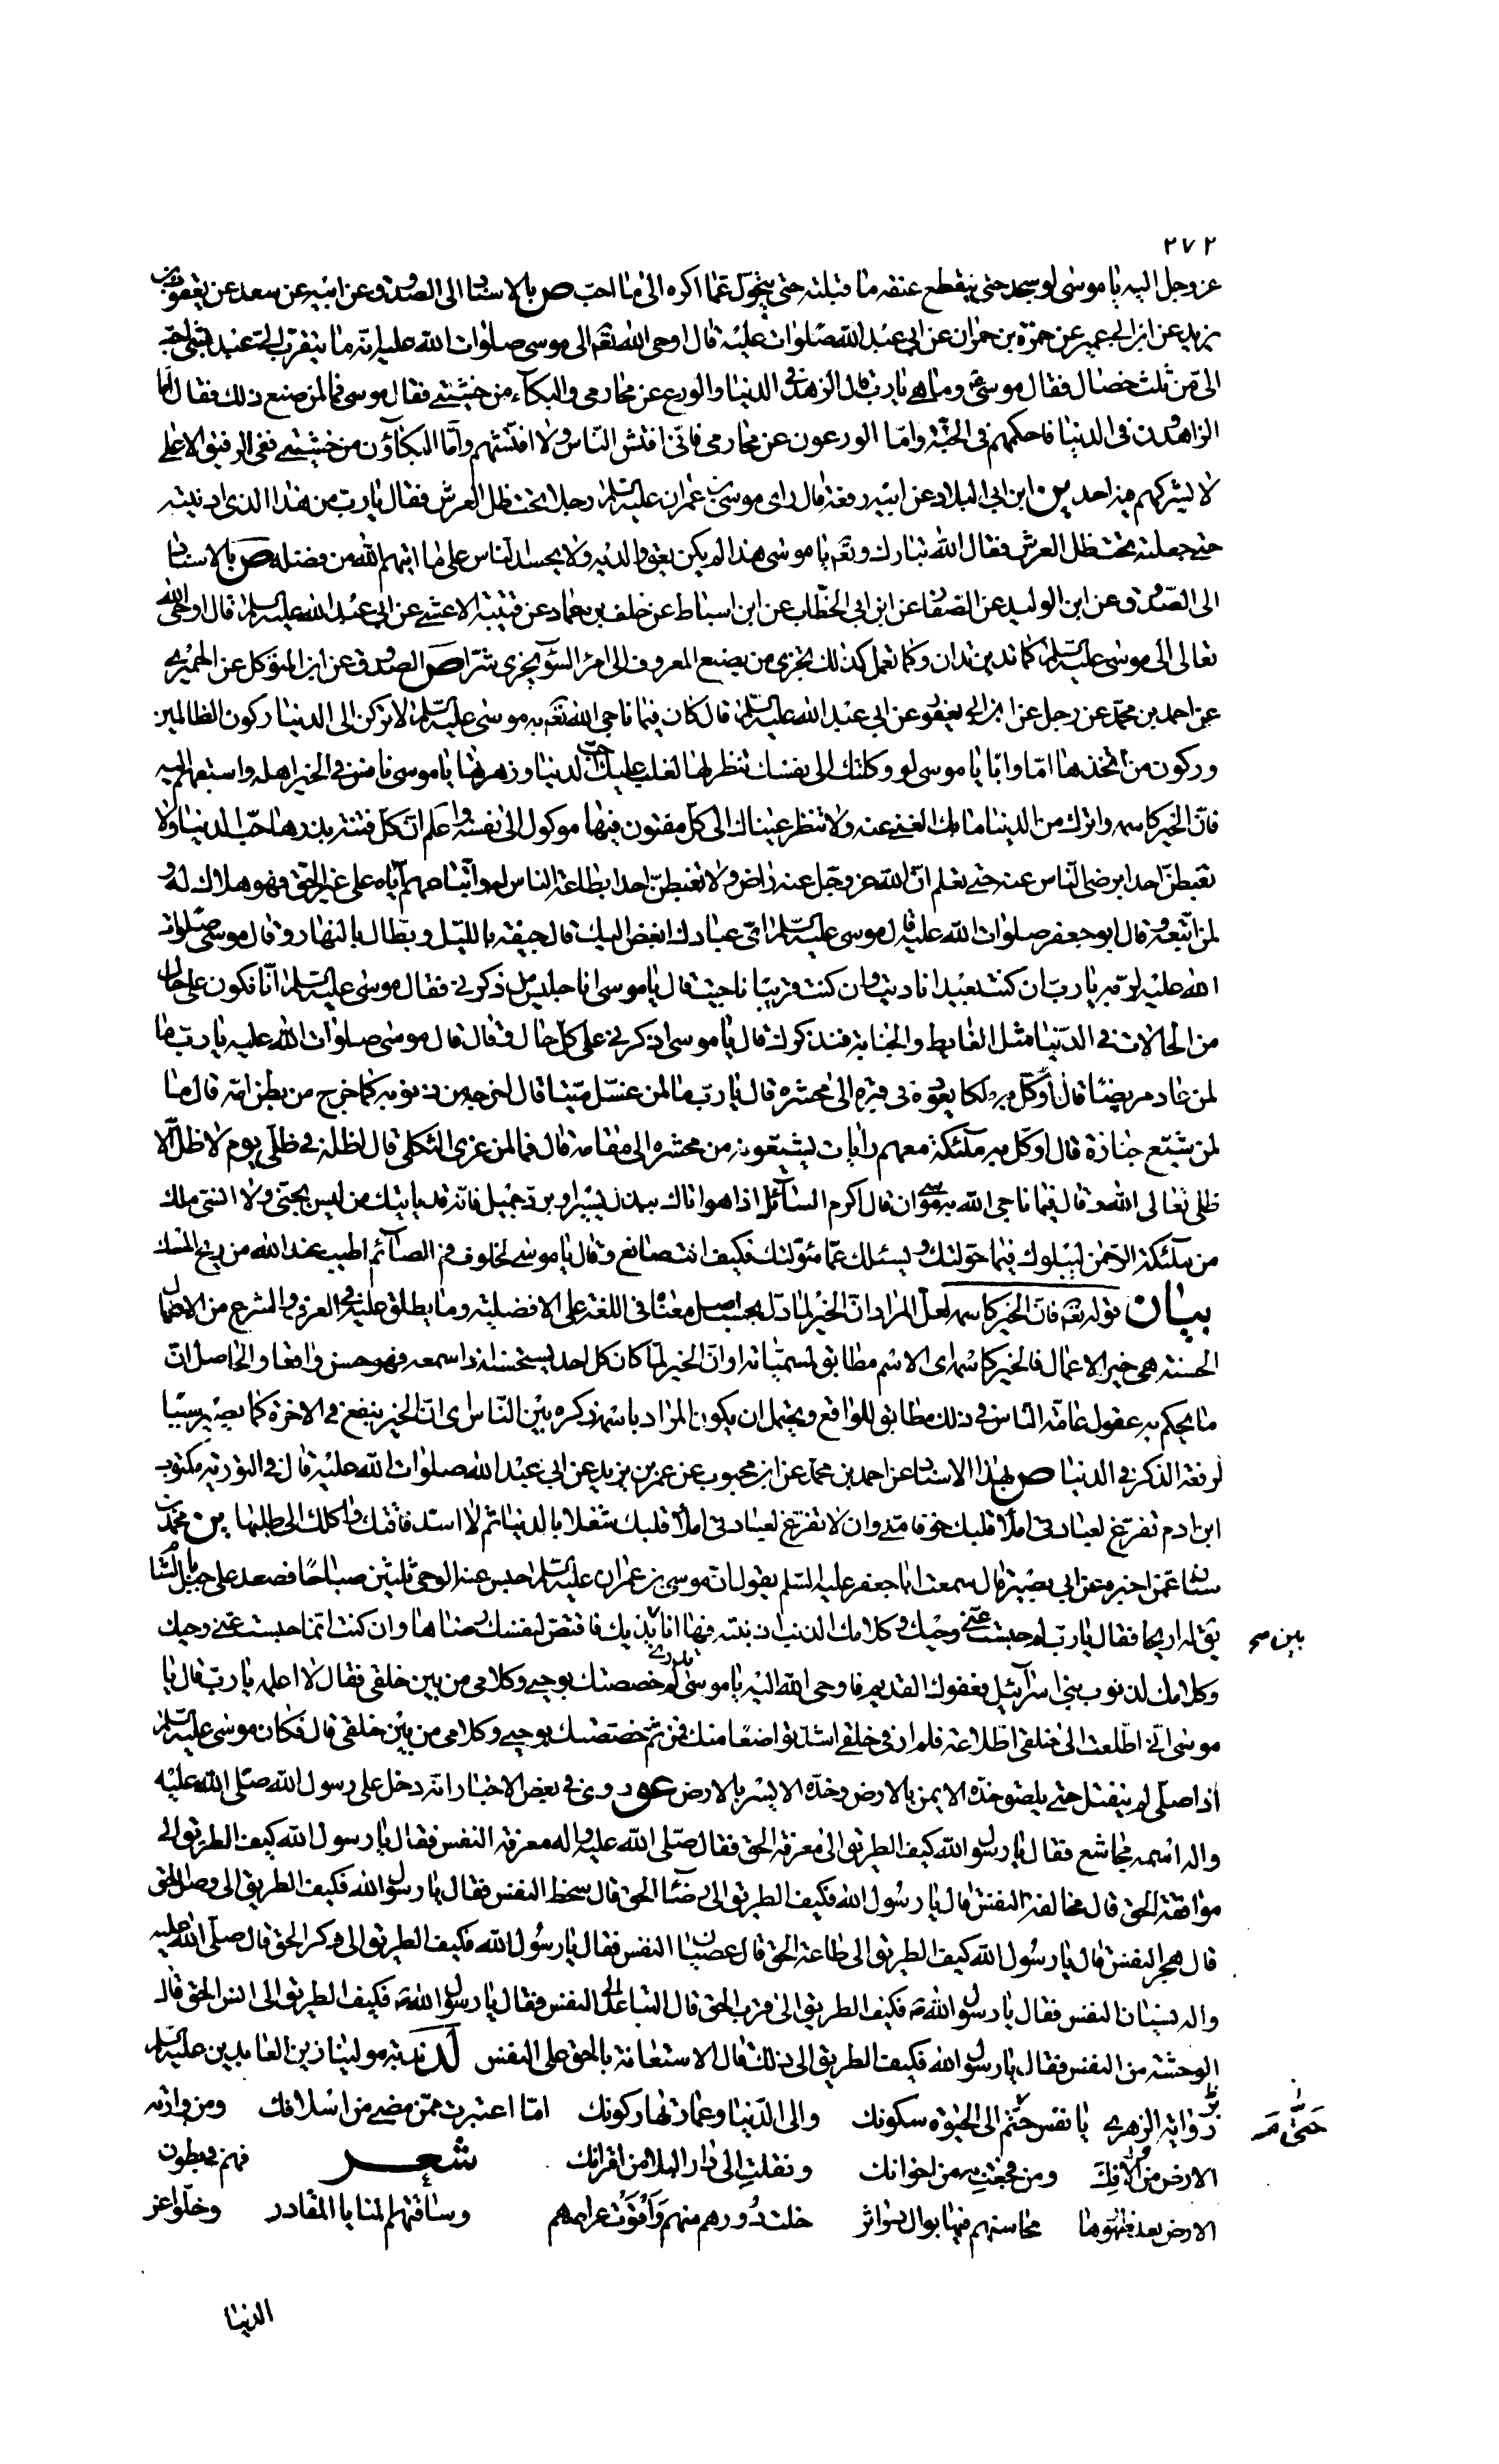 ٢٧٢
عز وجل اليه يا موسى لو سجد حتى ينقطع عنقه ما قبلته حتى يتحول عما اكره الى ما احب ص بالاسناد الى الصدوق عن ابيه عن سعد عن يعقوب بن
يزيد عن ابن ابي عمير عن حمزة بن حمران عن ابي عبد الله صلوات عليه قال اوحى الله تعه الى موسى صلوات الله عليه انه ما يتقرب الى عبد بشئ احب
الى من ثلث خصال فقال موسى وما هي يا رب قال الزهد في الدنيا والورع عن محارمي والبكاء من خشيتي فقال موسى فما لمن صنع ذلك فقال اما
الزاهدون في الدنيا فاحكمهم في الجنة واما الورعون عن محارمي فاني افتش الناس ولا افتشهم واما البكاؤن من خشيتي ففي الرفيق الاعلى
لا يشركهم فيه احد ين ابن ابي البلاد عن ابيه رفعه قال راى موسى بن عمران عليه السلم رجلا تحت ظل العرش فقال يا رب من هذا الذي ادنيته
حتى جعلته تحت ظل العرش فقال الله تبارك وتعه يا موسى هذا لم يكن يعق والديه ولا يحسد الناس على ما اتيهم الله من فضله ص بالاسناد
الى الصدوق عن ابن الوليد عن الصفار عن ابن ابي الخطاب عن ابن اسباط عن خلف بن حماد عن قتيبة الاعشى عن ابي عبد الله عليه السلم قال اوحى الله
تعالى الى موسى عليه السلم كما تدين تدان وكما تعمل كذلك تجزى من يصنع المعروف الى امرء السوء يجزى شرا ص الصدوق عن ابن المتوكل عن الحميري
عن احمد بن محمد عن رجل عن ابن ابي يعفور عن ابي عبد الله عليه السلم قال كان فيما ناجى الله تعه به موسى عليه السلم لا تركن الى الدنيا ركون الظالمين
وركون من اتخذها اما وابا يا موسى لو وكلتك الى نفسك تنظر لها لغلب عليك حب الدنيا وزهرتها يا موسى نافس في الخير اهله واستبقهم اليه
فان الخير كاسمه واترك من الدنيا ما بك الغنى عنه ولا تنظر عيناك الى كل مفتون فيها موكول الى نفسه واعلم ان كل فتنة بذرها حب الدنيا ولا
تغبطن احدا برضى الناس عنه حتى تعلم ان الله عز وجل عنه راض ولا تغبطن احدا بطاعة الناس له واتباعهم اياه على غير الحق فهو هلاك له و
لمن اتبعه وقال ابو جعفر صلوات الله عليه قال موسى عليه السلم اي عبادك ابغض اليك قال جيفة بالليل وبطال بالنهار وقال موسى صلوات
الله عليه لربه يا رب ان كنت بعيدا ناديت وان كنت قريبا ناجيت قال يا موسى انا جليس من ذكرني فقال موسى عليه السلم انا نكون على حال
من الحالات في الدنيا مثل الغايط والجنابة فنذكرك قال يا موسى اذكرني على كل حال وقال قال موسى صلوات الله عليه يا رب ما
لمن عاد مريضا قال اوكل به ملكا يعوده في قبره الى محشره قال يا رب ما لمن غسل ميتا قال اخرجه من ذنوبه كما خرج من بطن امه قال ما
لمن شيع جنازة قال اوكل به ملئكة معهم رايات يشيعونه من محشره الى مقامه قال فما لمن عزى الثكلى قال اظله في ظلى يوم لا ظل الا
ظلى تعالى الله وقال فيما ناجى الله به موسى ان قال اكرم السائل اذا هو اتاك ببذل يسير او برد جميل فانه قد ياتيك من ليس بجنى ولا انسى ملك
من ملئكة الرحمن ليبلوك فيما خولتك ويسئلك عما مولتك فكيف انت صانع وقال يا موسى لخلوف فم الصائم اطيب عند الله من ريح المسك
بيان قوله تعه فان الخير كاسمه لعل المراد ان الخير لما دل بحسب اصل معناه في اللغة على الافضلية وما يطلق عليه في العرف والشرع من الاعمال
الحسنة هي خير الاعمال فالخير كاسمه اى الاسم مطابق لمسمياته او ان الخير لما كان كل احد يستحسنه اذا سمعه فهو حسن واقعا والحاصل ان
ما يحكم به عقول عامة الناس في ذلك مطابق للواقع ويحتمل ان يكون المراد باسمه ذكره بين الناس اى ان الخير ينفع في الاخرة كما يصير سببا
لرفعة الذكر في الدنيا ص بهذا الاسناد عن احمد بن محمد عن ابن محبوب عن عمر بن يزيد عن ابي عبد الله صلوات الله عليه قال في التورية مكتوب
ابن ادم تفرغ لعبادتي املأ قلبك خوفا مني وان لا تفرغ لعبادتي املأ قلبك شغلا بالدنيا ثم لا اسد فاقتك واكلك الى طلبها ين محمد بن
سنان عمن اخبره عن ابي بصير قال سمعت ابا جعفر عليه السلم يقول ان موسى بن عمران عليه السلم احبس عنه الوحى ثلثين صباحا فصعد على جبل بالشام
يق له اريحا فقال يا رب لم حبست عنى وحيك وكلامك الذنب اذنبته فها انا بين يديك فاقتص لنفسك رضاها وان كنت انما حبست عنى وحيك
بين صح
وكلامك لذنوب بني اسرائيل فعفوك القديم فاوحى الله اليه يا موسى تدرى لم خصصتك بوحيى وكلامى من بين خلقى فقال لا اعلمه يا رب قال يا
موسى انى اطلعت الى خلقى اطلاعة فلم ار في خلقى اشد تواضعا منك فمن ثم خصصتك بوحيى وكلامى من بين خلقى قال فكان موسى عليه السلم
اذا صلى لم ينفتل حتى يلصق خده الايمن بالارض وخده الايسر بالارض عو روى في بعض الاخبار انه دخل على رسول الله صلى الله عليه
واله اسمه مجاشع فقال يا رسول الله كيف الطريق الى معرفة الحق فقال صلى الله عليه واله معرفة النفس فقال يا رسول الله كيف الطريق الى
موافقة الحق قال مخالفة النفس قال يا رسول الله فكيف الطريق الى رضاء الحق قال سخط النفس فقال يا رسول الله فكيف الطريق الى وصل الحق
قال هجر النفس قال يا رسول الله كيف الطريق الى طاعة الحق قال عصيان النفس فقال يا رسول الله فكيف الطريق الى ذكر الحق قال صلى الله عليه
واله نسيان النفس فقال يا رسول الله فكيف الطريق الى قرب الحق قال التباعد من النفس فقال يا رسول الله فكيف الطريق الى انس الحق قال
الوحشة من النفس فقال يا رسول الله فكيف الطريق الى ذلك قال الاستعانة بالحق على النفس لد ندبة مولينا زين العابدين عليه السلم
رواية الزهري يا نفس حتام الى الحيوة سكونك والى الدنيا وعمارتها ركونك اما اعتبرت بمن مضى من اسلافك ومن وارته
حتى مه
الارض من الافك ومن فجعت به من اخوانك ونقلت الى دار البلا من اقرانك شعر فهم في بطون
الارض بعد ظهورها محاسنهم فيها بوال دواثر خلت دورهم منهم واقوت عراصهم وساقتهم المنايا المقادر وخلوا عن
الدنيا